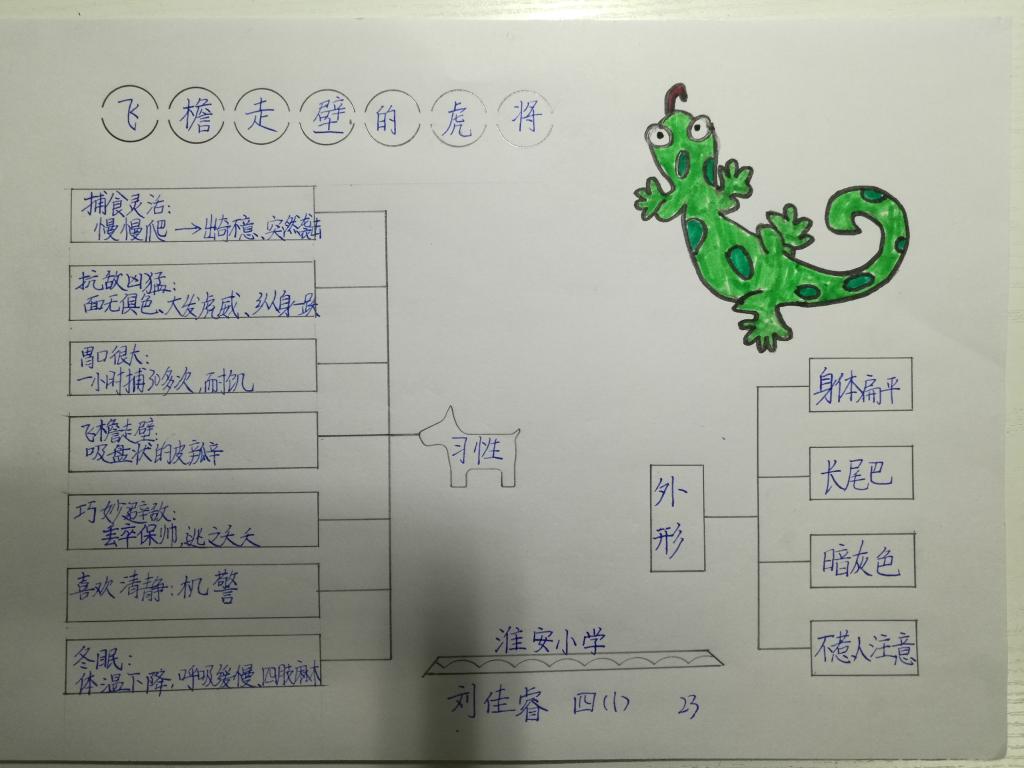 飞檐走壁的虎将
捕食灵活:
慢慢爬→出奇不意、突然袭击
抗敌凶猛:
面无惧色、大发虎威、纵身一跃
胃口很大:
一小时捕30多次,耐饥
飞檐走壁:
吸盘状的皮瓣
巧妙避敌:
丢卒保帅,逃之夭夭
喜欢清静:机警
冬眠:
体温下降,呼吸缓慢、四肢麻木
习性
外形
身体扁平
长尾巴
暗灰色
不惹人注意
淮安小学
刘佳睿 四(1) 23